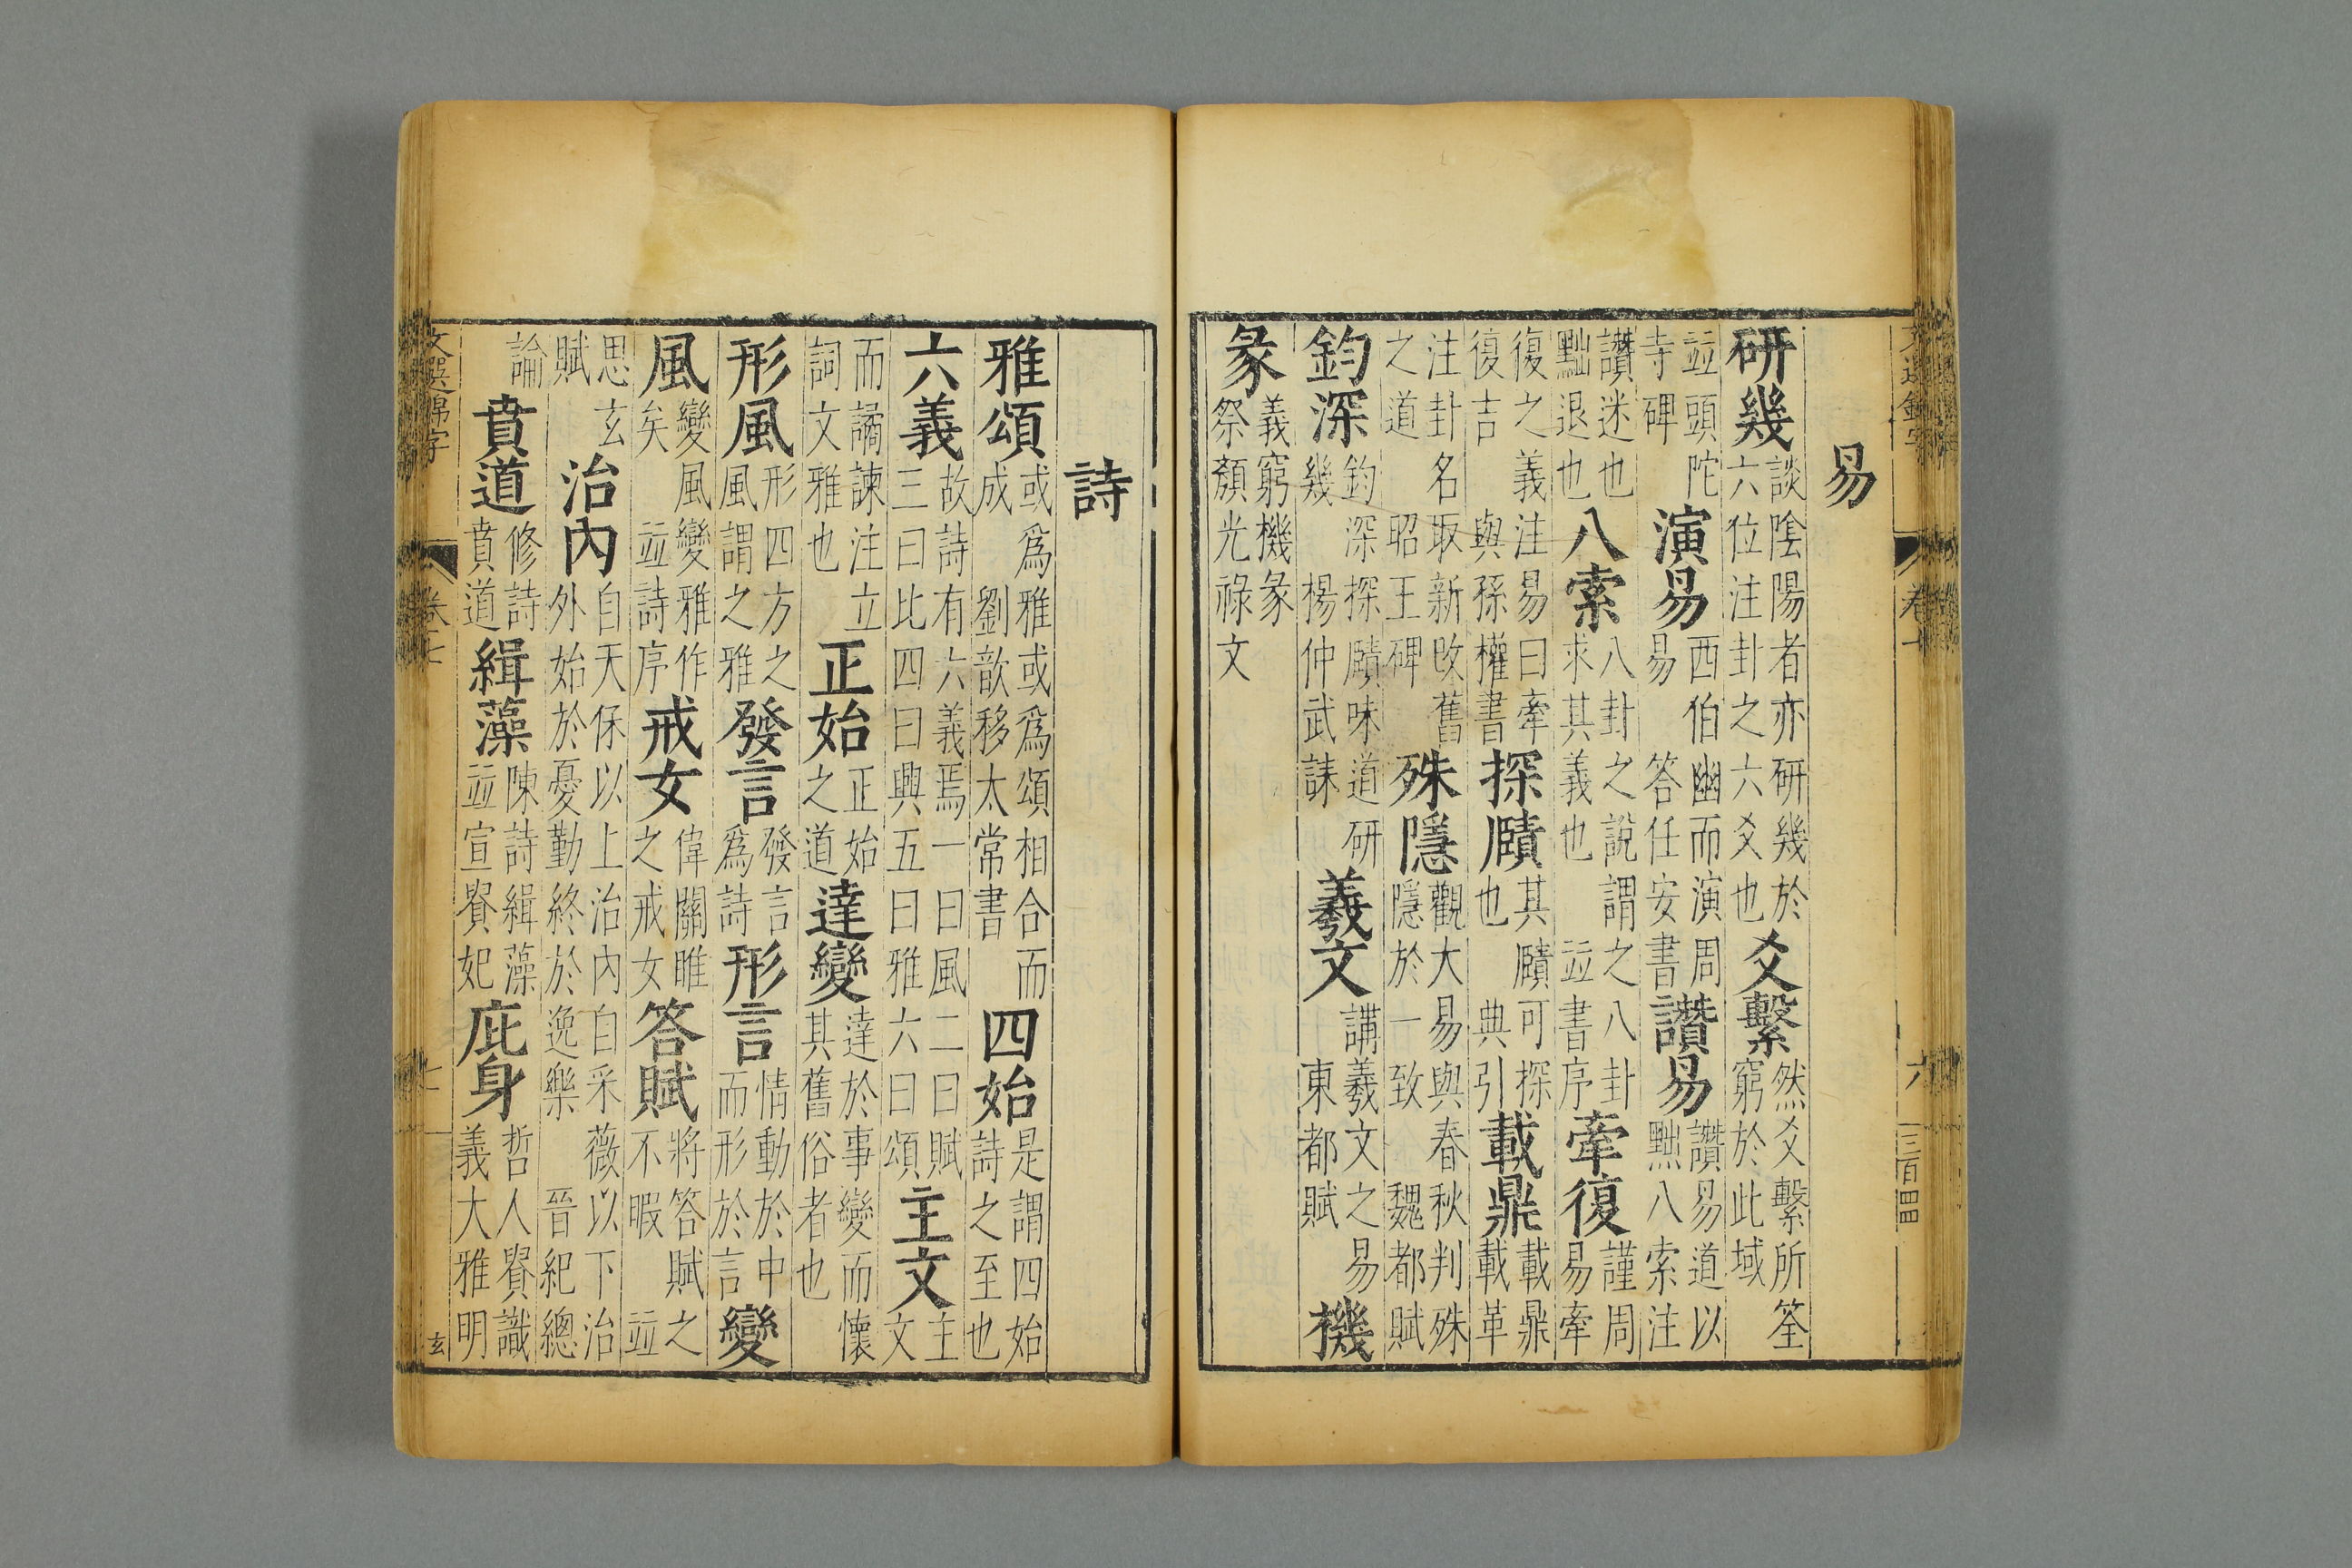 易
研幾談陰陽者亦研幾於六位注卦之六爻也爻繫然爻繫所筌窮於此域
並頭陀寺碑演易西伯幽而演周易答任安書讚易讚易道以黜八索注
讚迷也黜退也八索八卦之說謂之八卦求其義也並書序牽復謹周易牽
復之義注易曰牽復吉與孫權書探賾其賾可探也典引載鼎載鼎載革
注卦名取新改舊之道昭王碑殊隱觀大易與春秋判殊隱於一致魏都賦
鈎深鈎深探賾味道研幾楊仲武誄羲文講羲文之易東都賦機
彖義窮機彖祭顏光祿文
詩
雅頌或爲雅或爲頌相合而成劉歆移太常書四始是謂四始詩之至也
六義故詩有六義焉一曰風二曰賦三曰比四曰興五曰雅六曰頌主文主文
而譎諫注立詞文雅也正始正始之道達變達於事變而懷其舊俗者也
形風形四方之風謂之雅發言發言爲詩形言情動於中而形於言變
風變風變雅作矣並詩序戒女偉關雎之戒女答賦將答賦之不暇並
思玄賦治內自天保以上治內自采薇以下治外始於憂勤終於逸樂晉紀總
論賁道修詩賁道緝藻陳詩緝藻並宣貴妃庇身哲人貴識義大雅明
文選錦字